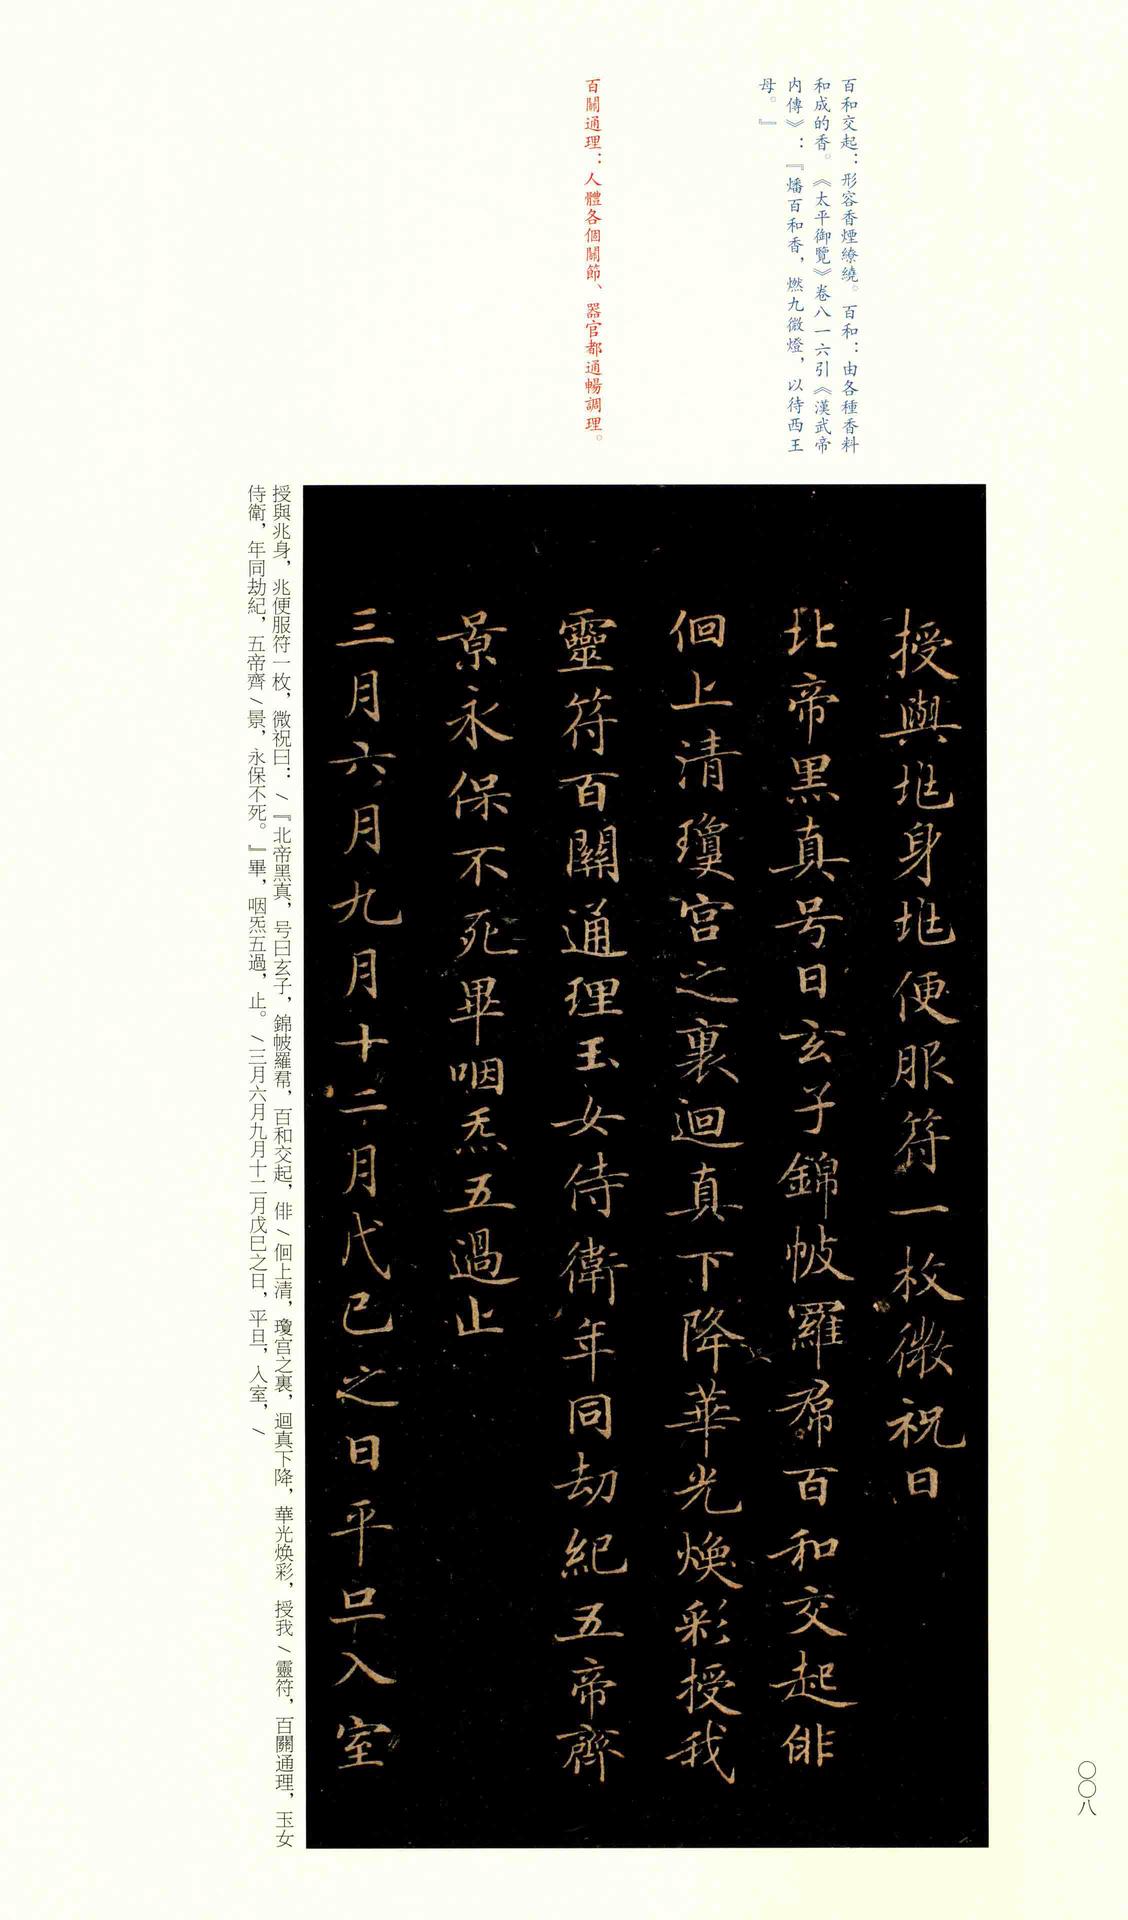 百和交起：形容香煙繚繞。百和：由各種香料
和成的香。《太平御覽》卷八一六引《漢武帝
内傳》：『燔百和香，燃九微燈，以待西王
母。』
百關通理：人體各個關節、器官都通暢調理。
授與兆身兆便服符一枚微祝曰
北帝黑真号曰玄子錦帔羅帬百和交起俳
佪上清瓊宫之裏迴真下降華光煥彩授我
靈符百關通理玉女侍衛年同劫紀五帝齊
景永保不死畢咽炁五過止
三月六月九月十二月戊巳之日平旦入室
授與兆身，兆便服符一枚，微祝曰：／『北帝黑真，号曰玄子，錦帔羅帬，百和交起，俳／佪上清，瓊宫之裏，迴真下降，華光煥彩，授我／靈符，百關通理，玉女
侍衛，年同劫紀，五帝齊／景，永保不死。』畢，咽炁五過，止。／三月六月九月十二月戊巳之日，平旦，入室，／
〇〇八